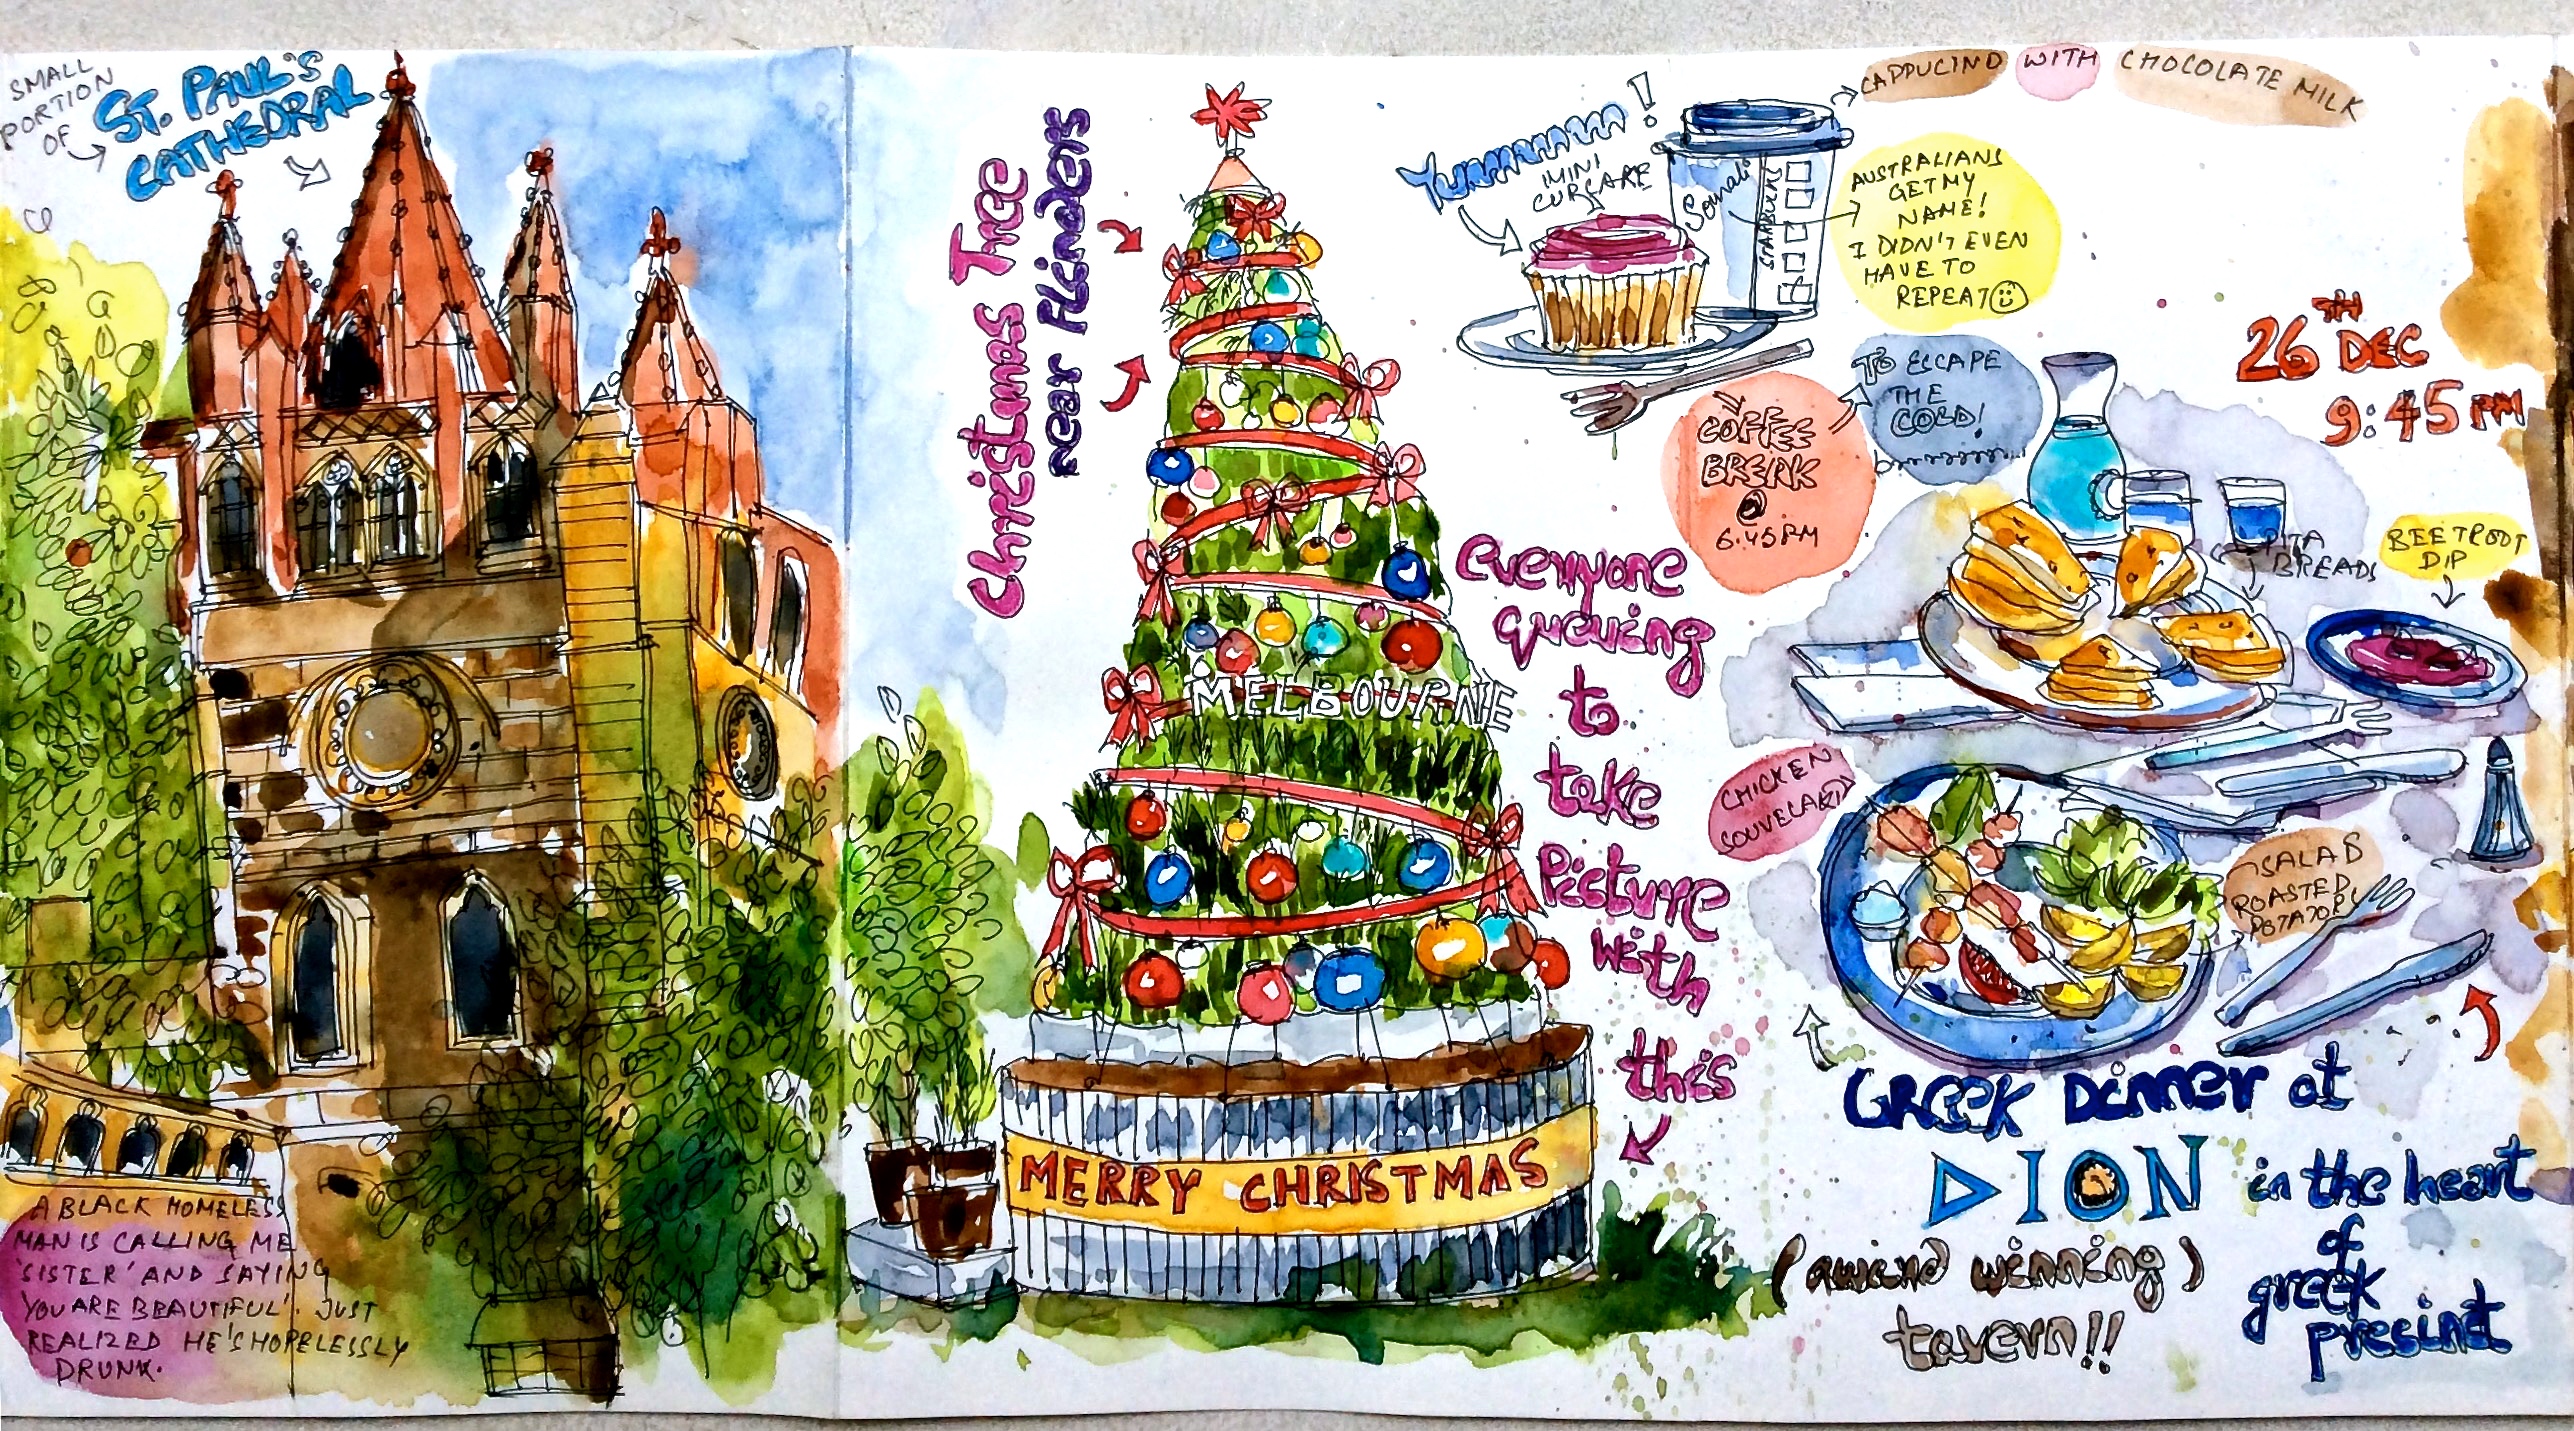 SMALL
PORTION
OF
ST. PAUL'S
CATHEDRAL
A BLACK HOMELESS
MAN IS CALLING ME
'SISTER' AND SAYING
'YOU ARE BEAUTIFUL'. JUST
REALIZED HE'S HOPELESSLY
DRUNK.
Christmas Tree
near Flinders
MELBOURNE
MERRY CHRISTMAS
everyone
queuing
to
take
Picture
with
this
Yummmmm!
MINI
CUPCAKE
Sonali
STARBUCKS
CAPPUCINO WITH CHOCOLATE MILK
AUSTRALIANS
GET MY
NAME!
I DIDN'T EVEN
HAVE TO
REPEAT
COFFEE
BREAK
@
6:45 PM
TO ESCAPE
THE
COLD!
brrrrrrrr...
26TH DEC
9:45 PM
PITA
BREADS
BEETROOT
DIP
CHICKEN
SOUVLAKI
SALAD
ROASTED
POTATOES
GREEK Dinner at
DION in the heart
of
greek
precinct
(award winning)
tavern!!